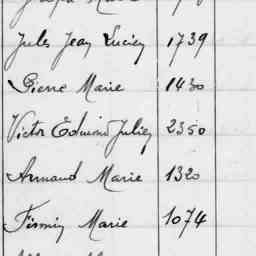 Jules Jean Lucien 1739
Pierre Marie 1430
Victor Edmond Julien 2350
Armand Marie 1320
Firmin Marie 1074